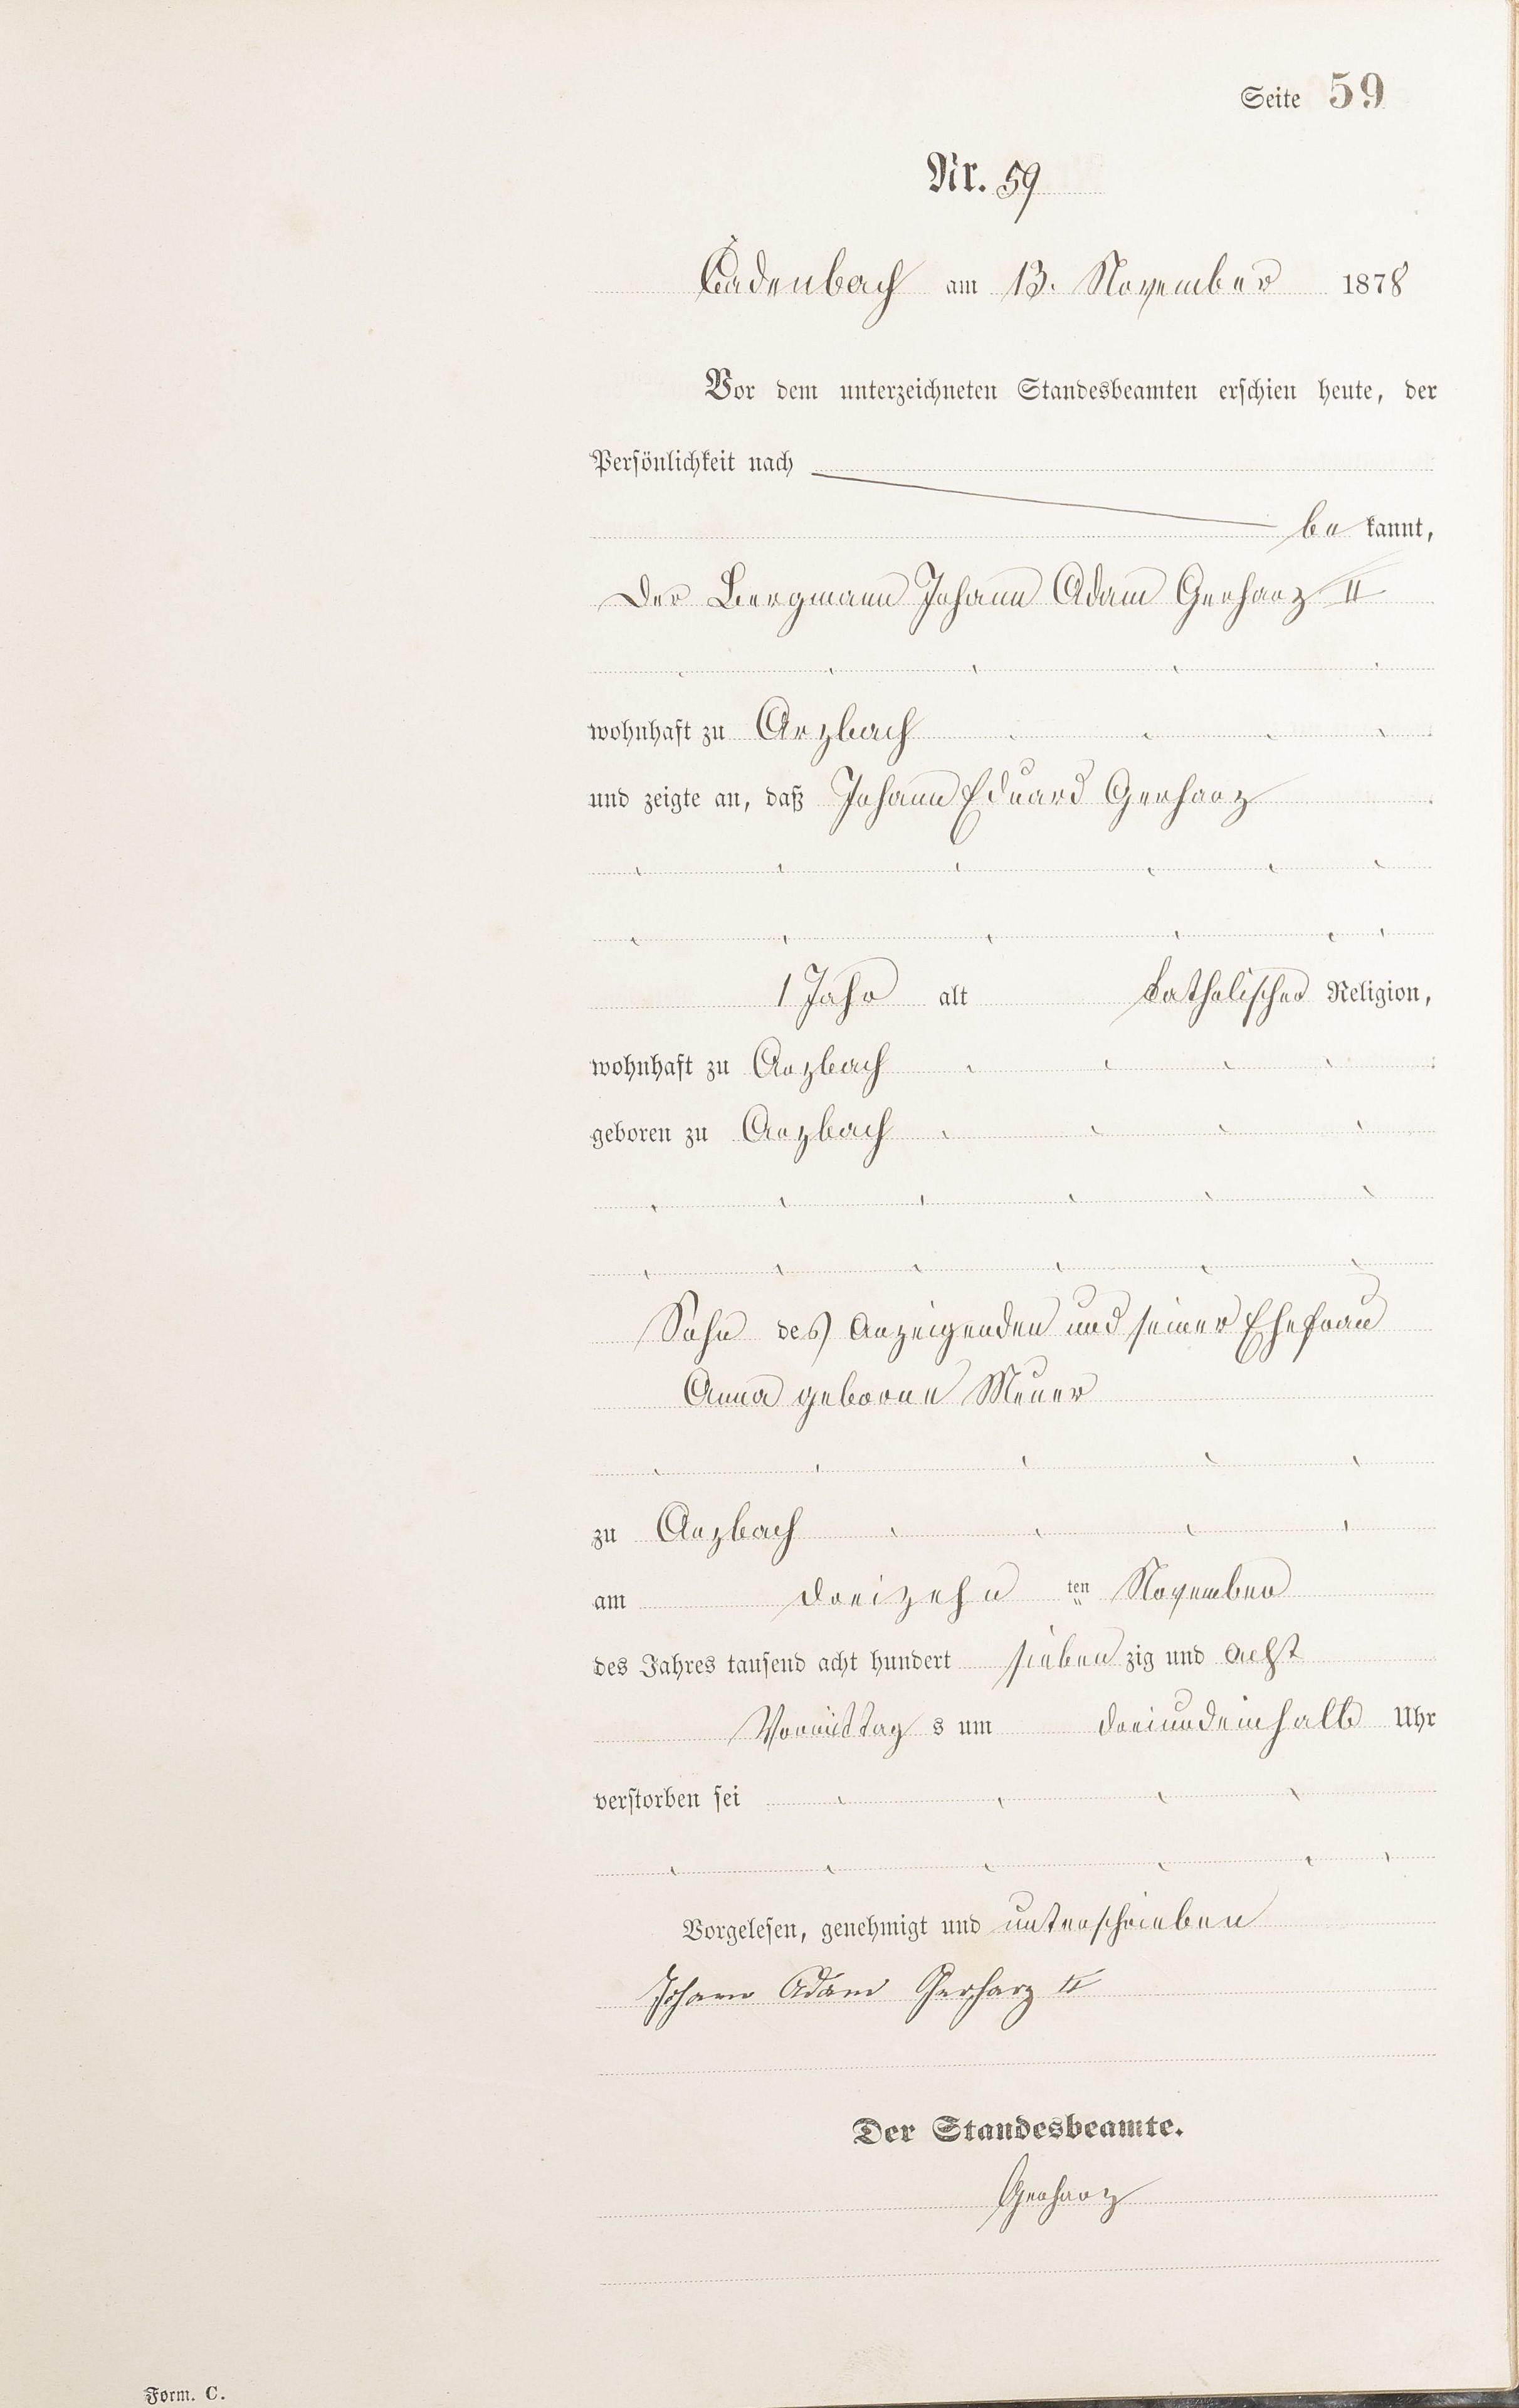 Seite 59
Nr. 59
Cadenbach am 13. November 1878
Vor dem unterzeichneten Standesbeamten erschien heute, der
Persönlichkeit nach
be kannt,
der Bergmann Johann Adam Gerharz II
wohnhaft zu Arzbach
und zeigte an, daß Johann Eduard Gerharz
1 Jahr alt katholischer Religion,
wohnhaft zu Arzbach
geboren zu Arzbach
Sohn des Anzeigenden und seiner Ehefrau
Anna geborne Meuer
zu Arzbach
am dreizehn ten November
des Jahres tausend acht hundert sieben zig und acht
Vormittag s um dreiundeinhalb Uhr
verstorben sei
Vorgelesen, genehmigt und unterschrieben
Johann Adam Gerharz II
Der Standesbeamte.
Gerharz
Form. C.